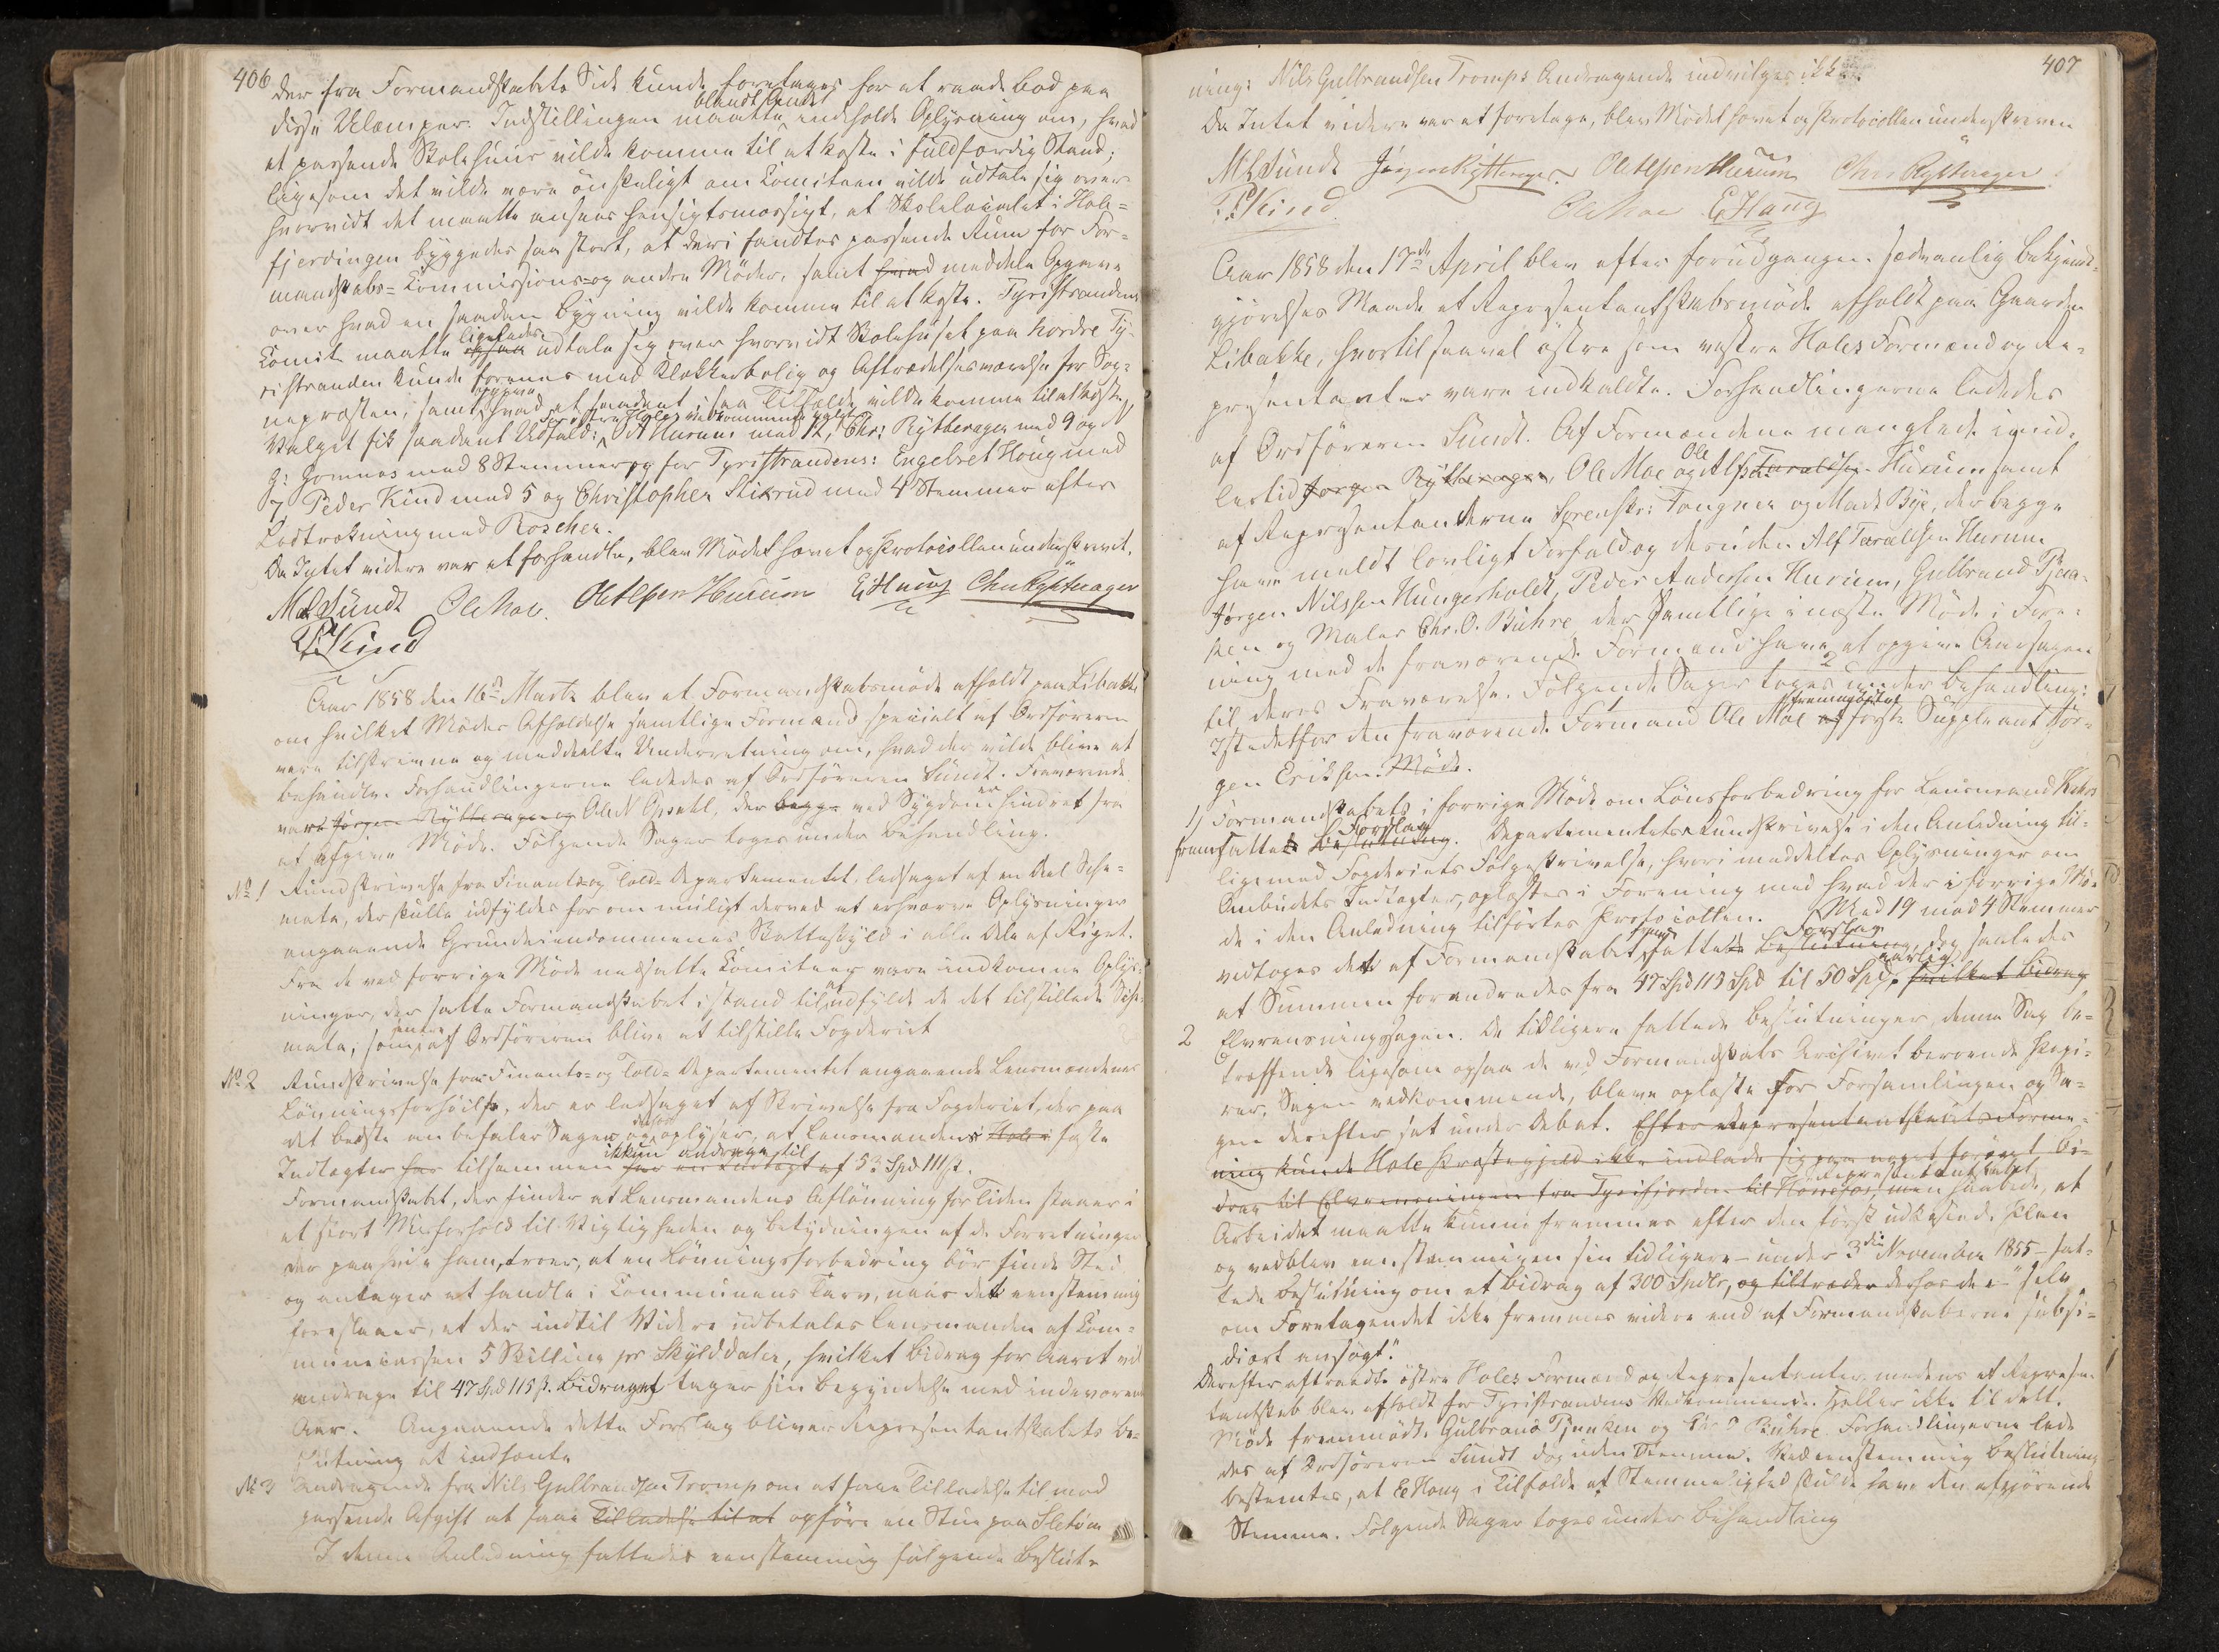 406
der fra Formandskabets Side kunde foretages for at raade bod paa
disse Ulæmper. Indstillingen maatte blandt Andet indeholde Oplysning om, hvad
et passende Skolehuus vilde komme til at koste i fuldfærdig Stand;
ligesom det vilde være önskeligt om Comiteen vilde udtale sig over
hvorvidt det maatte ansees hensigtsmæssigt, at Skolelocalet i Hole-
fjerdingen byggedes saa stort, at deri fandtes passende Rum for For-
mandskabs- Commissions- og andre Möder, samt hvad meddele Opgave
over hvad en saadan Bygning vilde komme til at koste. Tyristrandens
Comite maatte ogsaa ligeledes udtale sig over hvorvidt Skolehuset paa nordre Ty-
ristranden kunde forenes med Klokkerbolig og Aftrædelsesværelse for Sog-
nepræsten, samt opgive hvad et saadant i saa Tilfælde vilde komme til at koste.
Valget fik saadant Udfald: for østre Holes Vedkommende valgt O A Hurum med 12, Chr: Rytterager med 9 og
G: Gomnæs med 8 Stemmer og for Tyristrandens: Engebret Houg med
7 Peder Kind med 5 og Christopher Skirud med 4 Stemmer efter
Lodtrækning med Roscher.
Da Intet videre var at forhandle, blev Mödet hævet og Protocollen underskrevet.
M Sundt Ole Moe. Ole Alfsen Hurum E Haug Chr Rytterager
P. Kind
Aar 1858 den 16de Marts blev et Formandskabsmöde afholdt paa Libakke
om hvilket Mödes Afholdelse samtlige Formænd specielt af Ordföreren
vare tilskrevne og meddeelte Underretning om, hvad der vilde blive at
behandle. Forhandlingerne lededes af Ordföreren Sundt. Fraværende
vare Jørgen Rytterager og Ole N Opsahl, der begge ved Sygdom er hindret fra
at afgive Möde. Fölgende Sager toges under Behandling.
No 1 Rundskrivelse fra Finants- og Told- Departementet, ledsaget af en Deel Sche-
mata, der skulle udfyldes for om muligt derved at erhverve Oplysninger
angaaende Grundeiendommenes Skatteskyld i alle Dele af Riget.
Fra de ved forrige Möde nedsatte Comiteer vare indkomne Oplys-
ninger, der satte Formandskabet i stand til at udfylde de det tilstillede Sche-
mata, som af Ordföreren blive at tilstille Fogderiet
No 2 Rundskrivelse fra Finants- og Told- Departementet angaaende Lensmændenes
Lönningsforhöielse, der er ledsaget af Skrivelse fra Fogderiet, der paa
det bedste anbefaler Sagen og oplyser, at Lensmandens i Hole faste
Indtægter har tilsammen ikkun andrage til har en Indtægt af 53 Spd 111 s.
Formandskabet, der finder at Lensmandens Aflönning for Tiden staaer i
et stort Misforhold til Vigtigheden og Betydningen af de Forretninger
der paahvile ham, troer, at en Lönningsforbedring bör finde Sted
og antager at handle i Communens Tarv, naar det eenstemmig
foreslaaer, at der indtil Videre udbetales Lensmanden af Com-
munecassen 5 Skilling pr Skylddaler, hvilket Bidrag for Aaret vil
andrage til 47 Spd 115 s. Bidraget tager sin Begyndelse med indeværende
Aar. Angaaende dette Forslag bliver Repræsentantskabets Be-
slutning at indhente
No 3 Andragende fra Nils Gulbrandsen Tromp om at faae Tilladelse til mod
passende Afgift at faae Tilladelse til at opföre en Stue paa Sletøen
I denne Anledning fattedes eenstemmig fölgende Beslut-
407
ning: Nils Gulbrandsen Tromps Andragende indvilges ikke.
Da Intet videre var at foretage, blev Mödet hævet og Protocollen underskreven
M Sundt Jørgen Rytterager. Ole Alfsen Hurum Chr Rytterager
P. Kind Ole Moe E Haug
Aar 1858 den 17de April blev efter forudgangen sædvanlig Bekjendt-
gjörelses Maade et Repræsentantskabsmöde afholdt paa Gaarden
Libakke, hvortil saavel östre som vestre Holes Formænd og Re-
præsentanter vare indkaldte. Forhandlingerne lededes
af Ordföreren Sundt. Af Formændene manglede imid-
lertid Jørgen Rytterager, Ole Moe og Ole Alfs. Taraldsen Hurum samt
af Repræsentanterne Sorenskr: Tangen og Mads Bye, der begge
have meldt lovligt Forfald og desuden Alf Taraldsen Hurum
Jørgen Nilssen Hungerholdt, Peder Andersen Hurum, Gulbrand Pjaa-
ken og Maler Chr. O. Buhre der samtlige i næste Möde i Fore-
ning med de fraværende Formænd have at opgive Aarsagen
til deres Fraværelse. Fölgende 2 Sager toges under Behandling:
Istedetfor den fraværende Formand Ole Moe fremmödte af förste Suppleant Jör-
gen Eriksen. Möde.
1) Formandskabets i forrige Möde om Lönsforbedring for Lensmand
fremsatte Forslag Beslutning. Departementets Rundskrivelse i den Anledning til-
ligemed Fogderiets Fölgeskrivelse, hvori meddeltes Oplysninger om
Ombudets Indtægter, oplæstes i Forening med hvad der i forrige Mö-
de i den Anledning tilförtes Protocollen. Med 19 mod 4 Stemmer
vedtoges det af Formandskabet fremsatte Forslag Beslutning, dog saaledes
at Summen forandredes fra 47 Spd 115 Spd til 50 Spd. aarlig hvilket Bidrag
2 Elvrensningssagen. De tidligere fattede Beslutninger denne Sag be-
træffende ligesom ogsaa de ved Formandskabs Archivet beroende Papi-
rer, Sagen vedkommende, bleve oplæste for Forsamlingen og Sa-
gen derefter sat under Debat. Efter Repræsentantskabets Forme-
ning kunde Hole Præstegjeld ikke indlade sig paa noget forøget Bi-
drag til Elvrensningen fra Tyrifjorden til Hønefos, men Repræsentantskabet haabede, at
Arbeidet maatte kunne fremmes efter den först udkastede Plan
og vedblev eenstemmigen sin tidligere - under 3die November 1855 - fat-
tede Beslutning om et Bidrag af 300 Spdlr, og tiltræder derhos de - "selv
om Foretagendet ikke fremmes videre end af Formandskaberne subsi-
diært ansögt."
Derefter aftraadte östre Holes Formænd og Repræsentanter, medens et Repræsen-
tantskab blev afholdt for Tyristrandens Vedkommende. Heller ikke til dett.
Möde fremmödte Gulbrand Pjaaken og Chr O Buhre. Forhandlingerne lede-
des af Ordföreren Sundt dog uden Stemme. Ved eenstemmig Beslutning
bestemtes, at E Houg i Tilfælde af Stemmelighed skulde have den afgjörende
Stemme. Fölgende Sager toges under Behandling